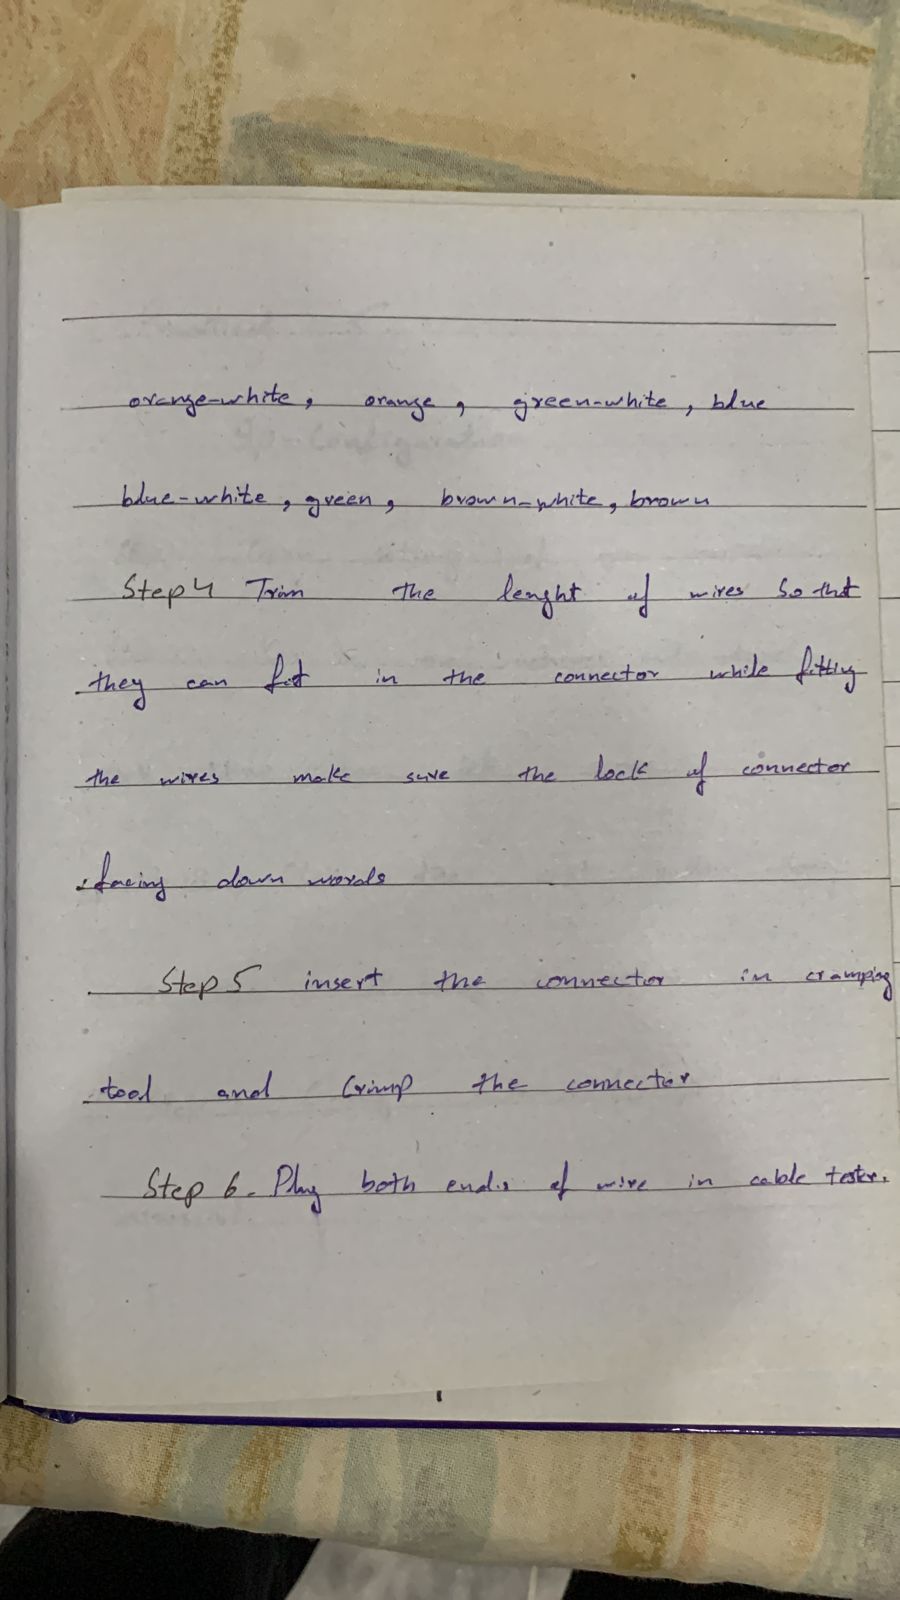 orange-white, orange, green-white, blue
blue-white, green, brown-white, brown
Step 4 Trim the lenght of wires So that
they can fit in the connector while fitting
the wires make sure the lock of connector
facing down words
Step 5 insert the connector in cramping
tool and Crimp the connector
Step 6. Plug both ends of wire in cable tester.